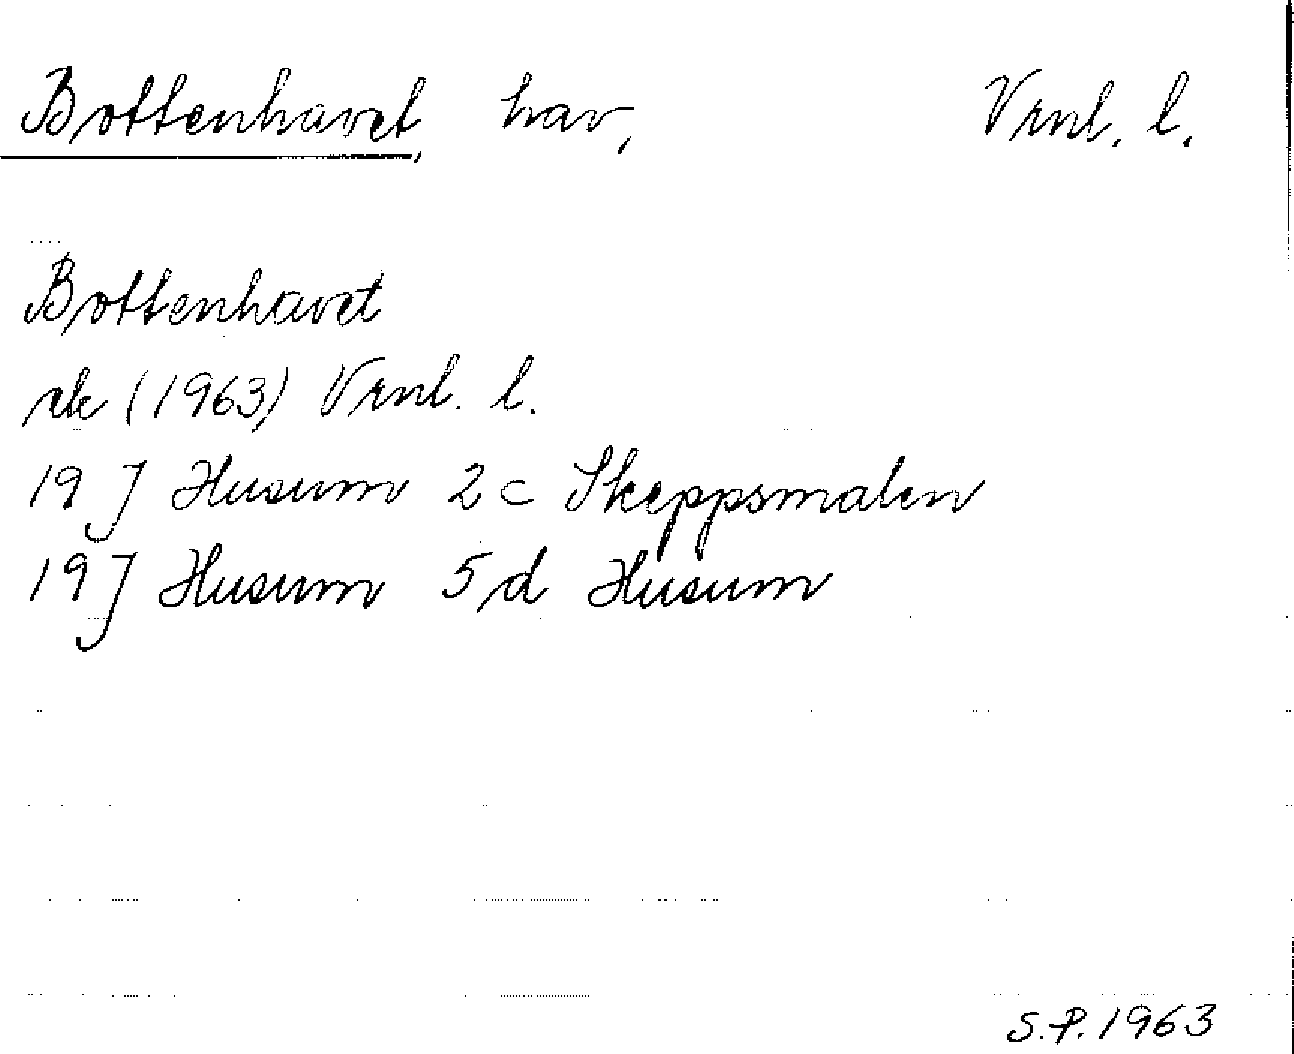 Bottenhavet, hav, Vrnl. l.
Bottenhavet
ek (1963) Vrnl. l.
19 J Husum 2 c Skeppsmalen
19 J Husum 5 d Husum
S.P. 1963